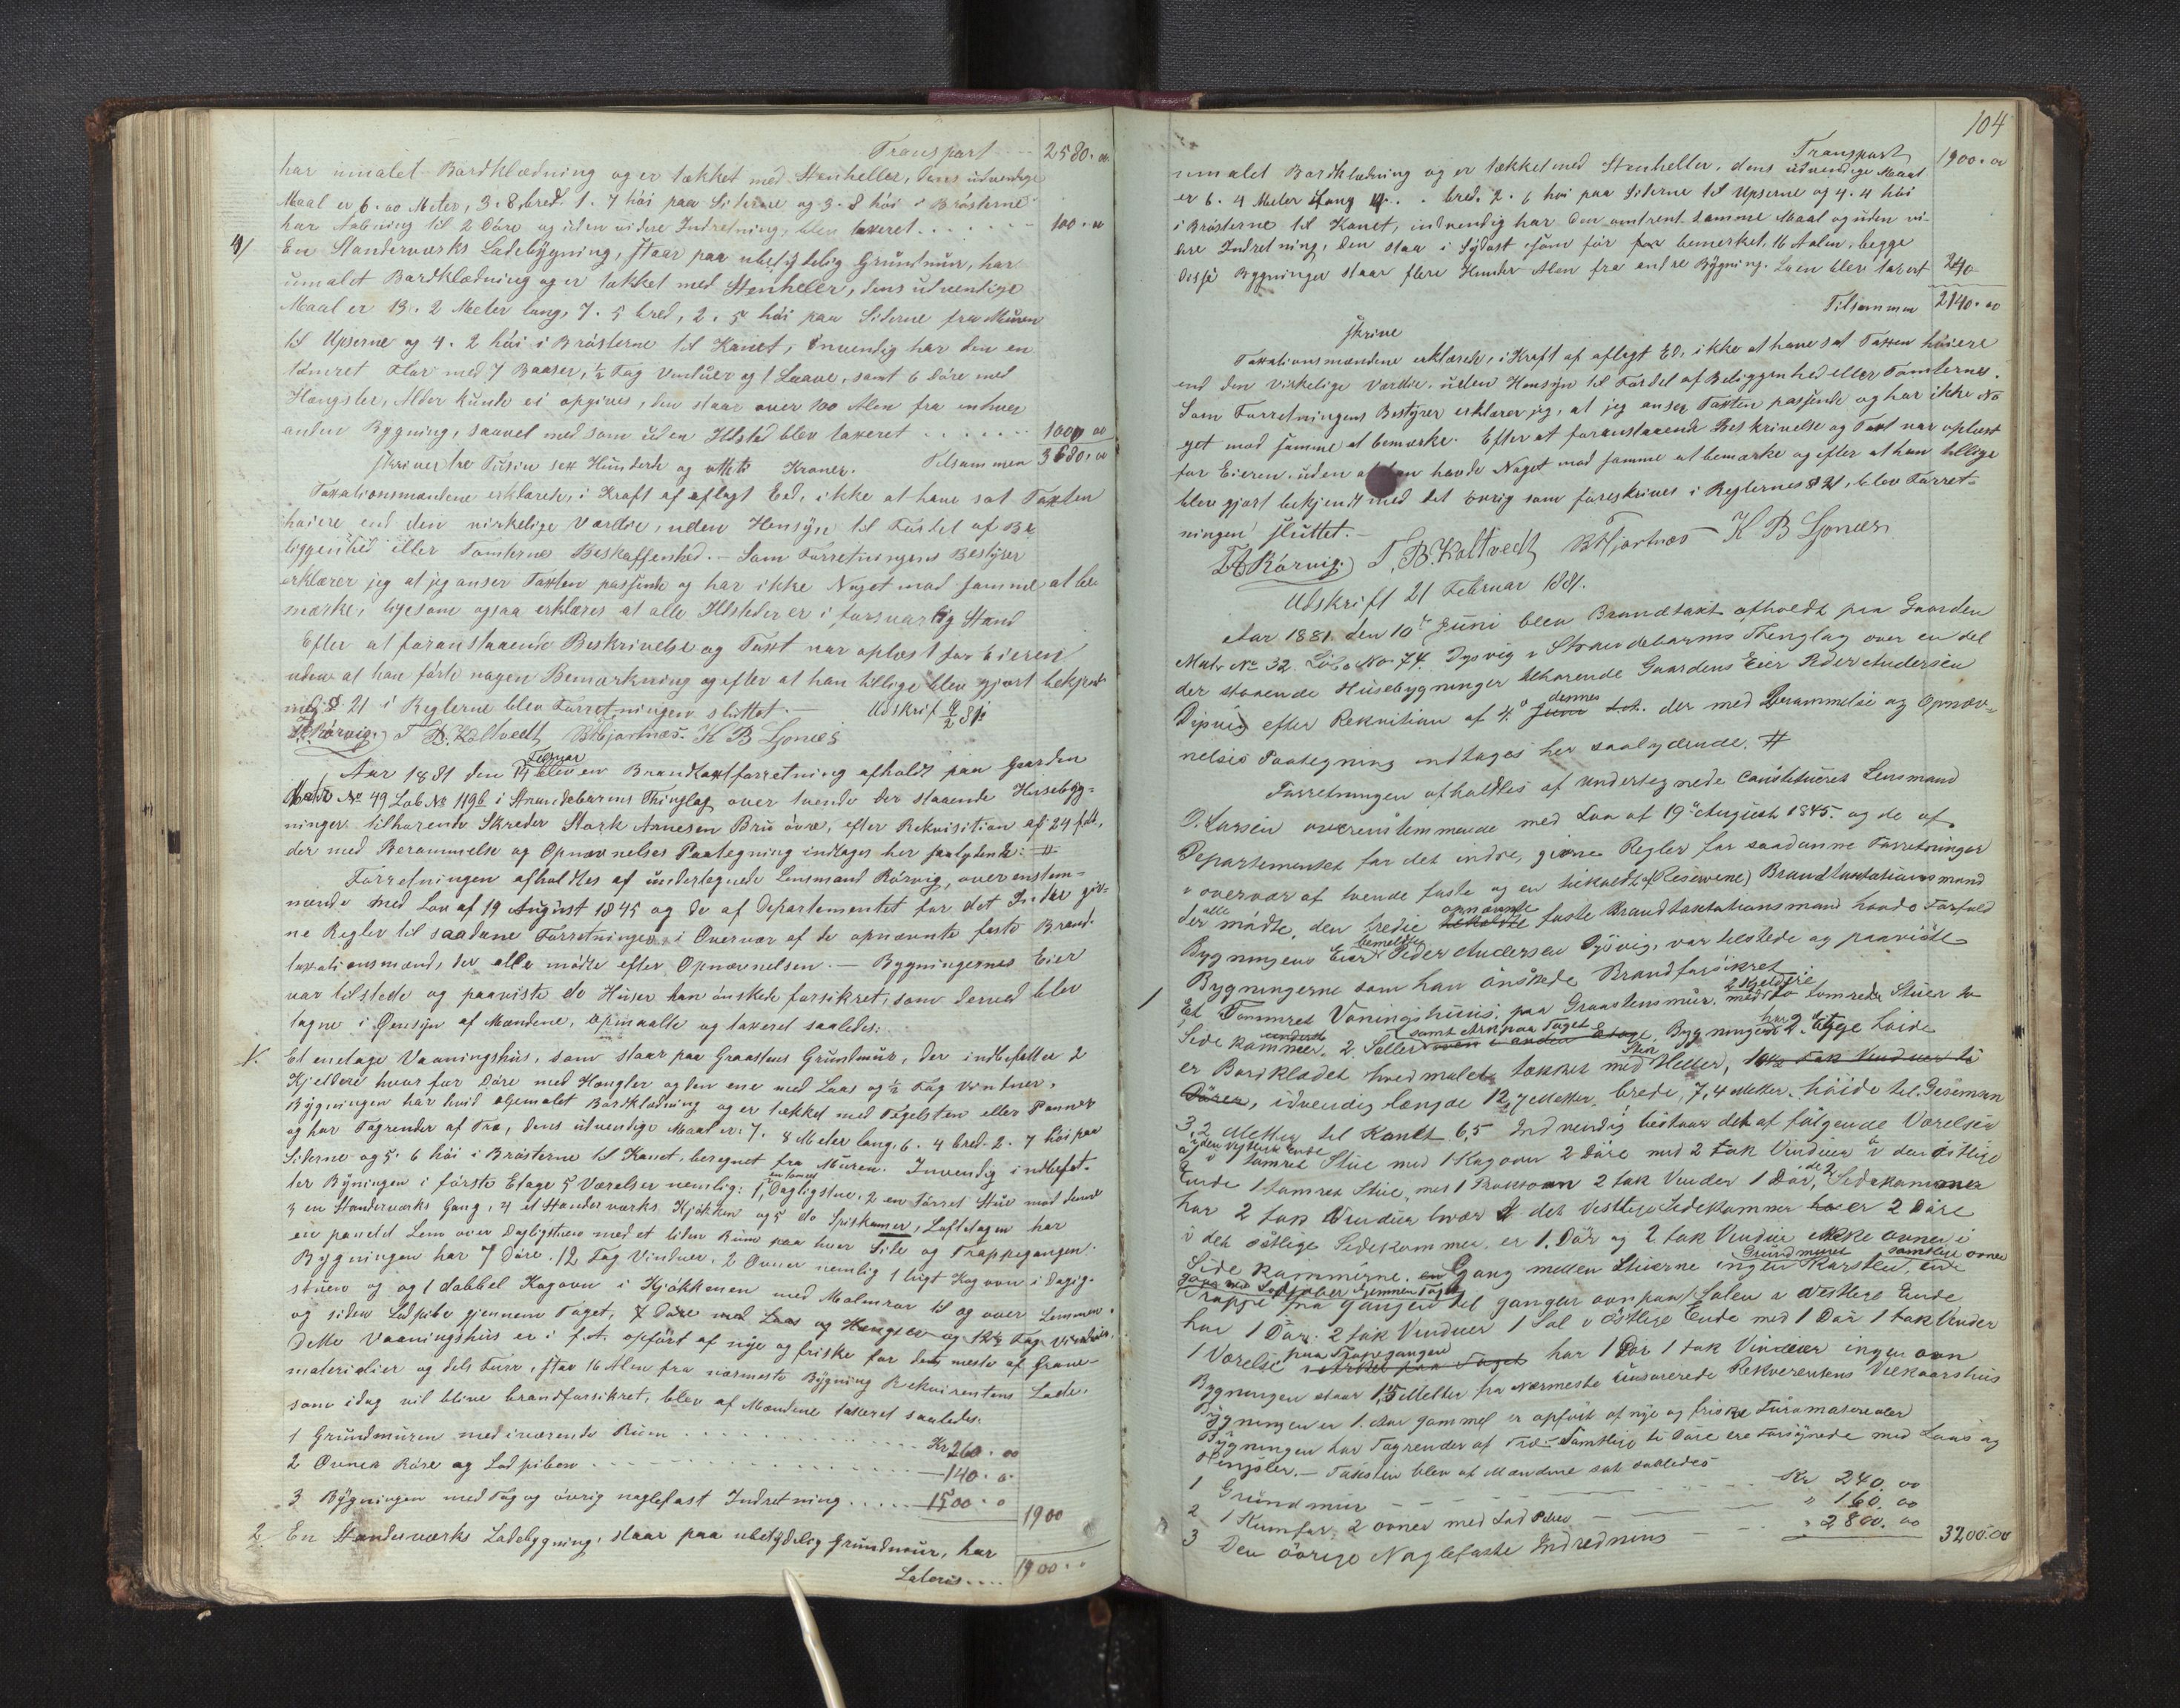 Transport - - - 2580. 00
har umalet Bordklædning og er tækket med Stenheller, dens udvendige
Maal er 6. 00 Meter, 3. 8 bred. 1. 7 hói paa Siderne og 3. 8 hói i Brósterne
har Aabning til 2 Dóre og uden videre Indretning, blev taxeret . . . . . . 100. 00
4/ En Standerværks Ladebÿgning, staar paa ubetÿdelig Grundmur, har
umalet Bordklædning og er tækket med Stenheller, dens udvendige
Maal er 13. 2 Meter lang, 7. 5 bred, 2. 5 hói paa Siderne fra Muren
til Upserne og 4. 2 hói i Brósterne til Kanet, invendig har den en
tómret Flor med 7 Baaser, ½ Fag Vinduer og 1 Laave, samt 6 Dóre med
Hængsler, Alder kunde ei opgives, den staar over 100 Alen fra enhver
anden Bygning, saavel med som uden Ildsted blev taxeret . . . . . . . 1000 00
skriver tre Tusin sex Hundrede og otteti Kroner. Tilsammen 3680. 00
Taxationsmændene erklærede, i Kraft af aflagt Eed, ikke at have sat Taxten
hóiere end den virkelige Værdie, uden Hensÿn til Fordel af Be
liggenhed eller Tomternes Beskaffenhed. — Som Forretningens Bestÿrer
erklærer jeg at jeg anser Taxten passende og har ikke Noget mod samme at be
mærke, ligesom ogsaa erklæres at alle Ildsteder er i forsvarlig Stand
Efter at foranstaaende Beskrivelse og Taxt var oplæst for Eieren
uden at han fórte nogen Bemærkning og efter at han tillige blev gjort bekjent
med § 21 i Reglerne blev Forretningen sluttet. — Udskrif 4/2 81
Rórvig. T. B. Koltvedt B Hjortnæs. K B Ljonæs
Aar 1881 den 14 Februar blev en Brandtaxtforretning afholdt paa Gaarden
Matr No 49 Lób No 119b i Strandebarms Thinglag over tvende der staaende Husebÿg=
ninger tilhórende Skreder Stork Arnesen Bru óvre, efter Rekvisition af 24 f. M.,
der med Berammelse og Opnævnelses Paategning indtages her saalydende: #
Forretningen afholdtes af undertegnede Lensmand Rórvig, overenstem=
mende med Lov af 19 August 1845 og de af Departementet for det Indre giv=
ne Regler til saadane Forretninger, i Overvær af de opnævnte faste Brand=
taxationsmænd, der alle módte efter Opnævnelsen. — Bygningernes Eier
var tilstede og paaviste de Huser han ónskede forsikret, som derved blev
tagne i Óiesÿn af Mændene, opmaalte og taxeret saaledes:
1. Et enetages Vaaningshus, som staar paa Graastens Grundmur, der indbefatter 2
Kjeldere hvorfor Dóre med Hængler og den ene med Laas og ½ Fag Vinduer,
Bÿgningen har hvid oljemalet Bordklædning og er tækket med Tegelsten eller Panner
og har Tagrender af Træ, dens udvendige Maal er: 7. 8 Meter lang. 6. 4 bred. 2. 7 hói paa
Siderne og 5. 6 hói i Brósterne til Kanet, beregnet fra Muren. Invendig indbefat=
ter Bÿningen i fórste Etage 5 Værelser nemlig: 1, en tómret Dagligstue, 2 en Tórret Stue mod denne
3 en Standerværks Gang, 4 et Standerværks Kjókken og 5 do Spiskamer, Loftetagen har
en paneled Lem over Dagligstuen med et liden Rum paa hver Side og Trappegangen.
Bÿgningen har 7 Dóre. 12 Fag Vinduer. 2 Ovner nemlig 1 lugt Kogovn i Daglig=
stuen og og 1 dobbel Kogovn i Kjókkenen med Malmror til og over Lemmen
og siden Ledpibe gjennem Taget, 7 Dóre med Laas og Hængsler og 12½ Fag Vinduer.
Dette Vaaningshus er i f. A. opfórt af nÿe og friske for det meste af Grane=
materialier og dels Furu, stav 16 Alen fra nærmeste Bÿgning Rekvirentens Lade,
som idag vil blive brandforsikret, blev af Mændene taxeret saaledes:
1 Grundmuren med iværende Rum . . . . . . . . . . Kr 260. 00
2 Ovner Róre og Ledpiben . . . . . . . . . . — 140. 0
3 Bÿgningen med Tag og óvrig naglefast Indretning . . . . — 1500. 0 1900
2. En Standerværks Ladebygning, staar paa ubetÿdelig Grundmur, har
Lateris.... 1900. .
104
Transport 1900. 00
umalet Bordklædning og er tækket med Stenheller, dens udvendige Maal
er 6. 4 Meter lang 4. . bred. 2. 6 hói paa Siderne til Upserne og 4. 4 hói
i Brósterne til Kanet, indvendig har den omtrent samme Maal og uden vi=
dere Indretning, den staar i Sÿdost som fór for bemerket. 16 Aalen, begge
disse Bygninger staar flere Hunder Alen fra andre Bÿgning. Laen blev taxert 240
Tilsammen 2140. 00
skrive
Taxationsmændene erklærede, i Kraft af aflagt Ed, ikke at have sat Taxten hóiere
end den virkelige Værdie, uden Hensÿn til Fordel af Beliggenhed eller Tomternes.
Som Forretningens Bestÿrer erklærer jeg, at jeg anser Taxten passende og har ikke No
get mod samme at bemærke. Efter at foranstaaende Beskrivelse og Taxt var oplæst
for Eieren, uden at han havde Noget mod samme at bemærke og efter at han tillige
blev gjort bekjendt med det óvrig som foreskrives i Reglernes § 21, blev Forret=
ningen sluttet. —
Rórvig. T. B. Koltvedt B Hjortnæs K B Ljonæs
Udskrift 21 Februar 1881.
Aar 1881. den 10de Juni blev Brandtaxt afholdt paa Gaarden
Matr No 32. Lób No 74. Dysvig i Strandebarms Thinglag over en del
der staaende Húsebygninger tilhórende Gaardens Eier Peder Andersen
Dysvig efter Rekvisition af 4de Juni dennes der med Berammelse og Opnæv=
nelses Paategning indtages her saalydende. #
Forretningen afholdtes af undertegnede Constitueret Lensmand
O. Larsen overenstemmende med Lov af 19de August 1845. og de af
Departementet for det indre, givne Regler for saadanne Forretninger
i overvær af tvende faste og en tilkaldt af (Reserverne) Brandtaxtationsmand
der alle módte, den tredie opnævnte faste Brandtaxtationsmand havde Forfald
Bygningens Eier bemeldte Peder Andersen Dysvig, var tilstede og paaviste
Bygningerne som han ónskede Brandforsikret
1 Et Tommret Vaningshuus, paa Graastensmur, 2 Kjeldere med to tomrede Stuer to
Side kammer, 2 Saller samt Ark paa Taget. Bygningen har 2 Etage hóide
er Bordkladet hvidmalet tækket med Sten Heller,
Dórer, udvendig længde 12,7 Metter, brede, 7,4 Metter. hóide til Gesemsen
3,2 Metter til Kanet 6,5 Indvendig bestaar det af fólgende Værelser
a i den vestlige Ende 1 tomret Stue med 1 Kogovn 2 Dóre med 2 fak Vinduer i den óstlige
Ende 1 tomret Stue, med 1 Kakovn 2 fak Vinder 1 Dór, de 2 Sidekammer
har 2 fak Vinduer hvær I det vestlige Sidekammer er 2 Dóre
i det óstlige Sidekammer, er 1. Dór og 2. fak Vinduer ikke ovner i
Side kammerne. Gang mellem Stuerne ingen Grundmuret Skorsten, samtlige ovner
gaar med Ledpiber Giennem Taget Trappe fra Gangen til gangen ovnpaa, Salen i vestlige Ende
har 1 Dór. 2 fak Vinduer 1 Sal i óstlige Ende med 1 Dór 1 fak Vinder
1 Værelse paa Trapegangen har 1 Dór 1 fak Vinduer ingen ovn
Bygningen staar 1,5 Metter fra nærmeste uasurerede Rekverentens Velkaarshus
Bÿgningen er 1. Aar gammel er opfórt af nÿe og friske Furumaterealer
Bÿgningen har Tagrender af Træ. Samtlige ti Dóre ere Forsÿnede med Laas og
Hengsler. — Taxsten blev af Mændene sat saaledes
1 Grundmur - - - - - Kr 240. 00
2 1 Kumfur, 2 ovner med Led Piber — " 160. 00
3 Den óvrige Naglefaste Indredning - - - " 2800. 00 3200.00